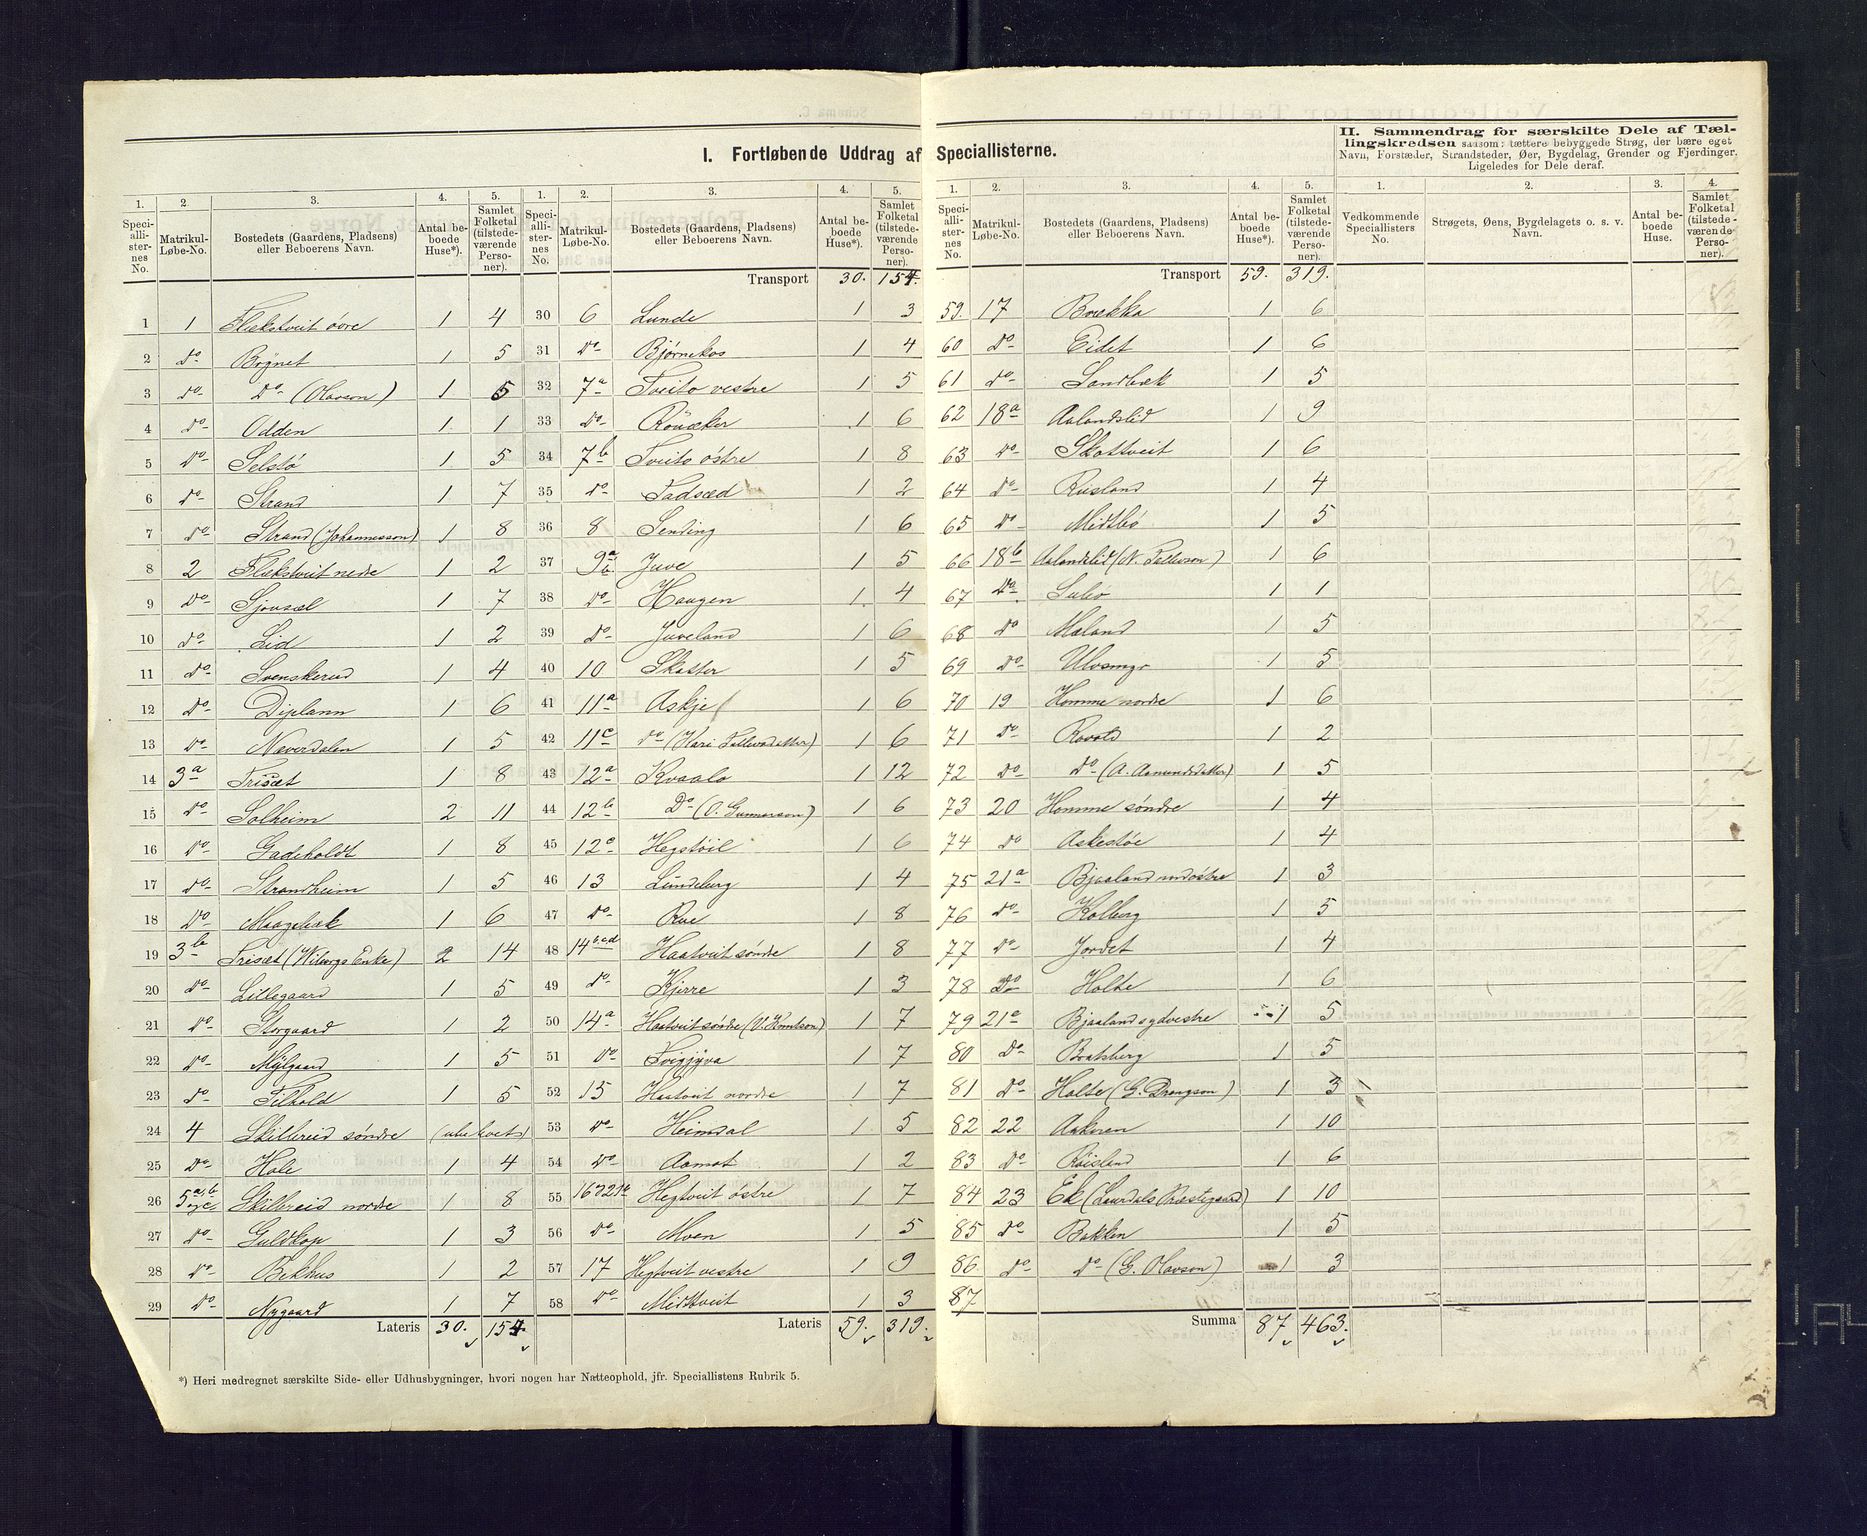 I. Fortløbende Uddrag af Speciallisterne.
II. Sammendrag for særskilte Dele af Tæl-
lingskredsen saasom: tættere bebyggede Strøg, der bære eget
Navn, Forstæder, Strandsteder, Øer, Bygdelag, Grender og Fjerdinger.
Ligeledes for Dele deraf.
1. 2 3. 4. 5. 1. 2. 3. 4. 5. 1. 2. 3. 4. 5. 1. 2. 3. 4.
Speci-alli-ster-nes No. Matrikul-Løbe-No. Bostedets (Gaardens, Pladsens) eller Beboerens Navn. Antal be-boede Huse*). Samlet Folketal (tilstede-værende Perso-ner).
Speci-alli-ster-nes No. Matrikul-Løbe-No. Bostedets (Gaardens, Pladsens) eller Beboerens Navn. Antal be-boede Huse*). Samlet Folketal (tilstede-værende Perso-ner).
Speci-alli-ster-nes No. Matrikul-Løbe-No. Bostedets (Gaardens, Pladsens) eller Beboerens Navn. Antal be-boede Huse*). Samlet Folketal (tilstede-værende Perso-ner).
Vedkommende Speciallisters No. Strøgets, Øens, Bygdelagets o. s. v. Navn. Antal be-boede Huse. Samlet Folketal (tilstede-værende Perso-ner).
1 1 Flekstveit øvre 1 4
2 do Bøgnet 1 5
3 do do (Olavson) 1 5
4 do Odden 1 1
5 do Selstø 1 5
6 do Strand 1 7
7 do Strand (Johannesson) 1 8
8 2 Flekstveit nedre 1 2
9 do Sjøusæl 1 7
10 do Lid 1 2
11 do Svenskerud 1 4
12 do Diplann 1 6
13 do Naverdalen 1 5
14 3a Trisæt 1 8
15 do Solheim 2 11
16 do Gadeholdt 1 8
17 do Strandheim 1 5
18 do Maagebæk 1 6
19 3b Trisæt (Wiborgs Enke) 2 14
20 do Lillegaard 1 5
21 do Storgaard 1 2
22 do Mylgaard 1 5
23 do Filhold 1 5
24 4 Skillereid søndre (ubeboet)
25 do Hole 1 4
26 5a,b og c Skillereid nordre 1 8
27 do Guldkop 1 3
28 do Bekhus 1 2
29 do Nygaard 1 7
Lateris 30. 154.
Transport 30. 154.
30 6 Lunde 1 3
31 do Bjørnekos 1 4
32 7a Tveito vestre 1 5
33 do Rönæker 1 6
34 7b Tveito østre 1 8
35 do Ladsæd 1 2
36 8 Sending 1 6
37 9a b Juve 1 5
38 do Haugen 1 4
39 do Juveland 1 6
40 10 Skatter 1 5
41 11a Askje 1 6
42 11c do (Kari Tallevsdatter) 1 6
43 12a Kvaale 1 12
44 12b Do (O. Gunnarson) 1 6
45 12c Hegstöil 1 6
46 13 Lundeberg 1 4
47 do Rue 1 8
48 14b,c,d Haatveit søndre 1 8
49 do Kjerre 1 3
50 14a Haatveit søndre (V. Knutson) 1 7
51 do Tvigjyva 1 7
52 15 Haatveit nordre 1 7
53 do Heimdal 1 5
54 do Aamot 1 2
55 16 Hegtveit østre 1 7
56 do Moen 1 5
57 17 Hegtveit vestre 1 9
58 do Midtveit 1 3
Lateris 59. 319.
Transport 59. 319.
59. 17 Brækka 1 6
60 do Eidet 1 6
61 do Sandbæk 1 5
62 18a Aalandslid 1 9
63 do Skottveit 1 6
64 do Rüsland 1 4
65 do Midtbö 1 5
66 18b Aalandslid (N. Tallevson) 1 6
67 do Sulio 1 1
68 do Moland 1 5
69 do Ulvsmyr 1 5
70 19 Homme nordre 1 6
71 do Rovold 1 2
72 do do (A. Aamundsdatter) 1 5
73 20 Homme søndre 1 4
74 do Askestøe 1 4
75 21a Bjaaland nordøstre 1 3
76 do Kolberg 1 5
77 do Jordet 1 4
78 do Holte 1 6
79 21c Bjaaland sydvestre 1 5
80 do Bratsberg 1 5
81 do Holte (G. Drengson) 1 3
82 22 Aakeren 1 10
83 do Röisland 1 6
84 23 Ek (Laurdals Præstegaard) 1 10
85 do Bakken 1 5
86 do do (G. Olavson) 1 3
87
Summa 87 463.
*) Heri medregnet særskilte Side- eller Udhusbygninger, hvori nogen har Natteophold, jfr. Speciallistens Rubrik 5.